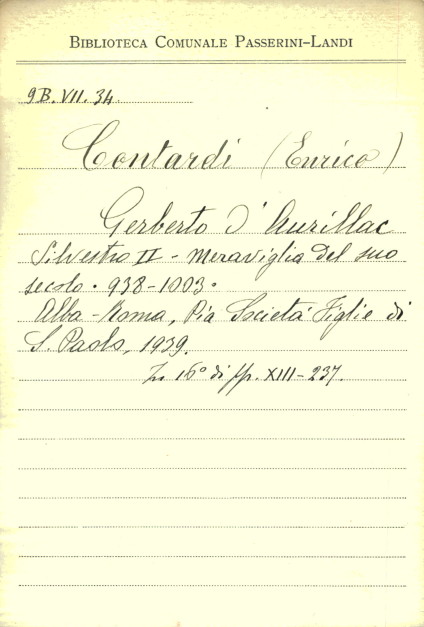 BIBLIOTECA COMUNALE PASSERINI-LANDI
9B. VII. 34
Contardi (Enrico)
Gerberto D'Aurillac
Silvestro II - Meraviglia del suo
secolo. 938-1003.
Alba-Roma, Pia Società Figlie di
S. Paolo, 1939.
In 16° di pp. XIII-237.